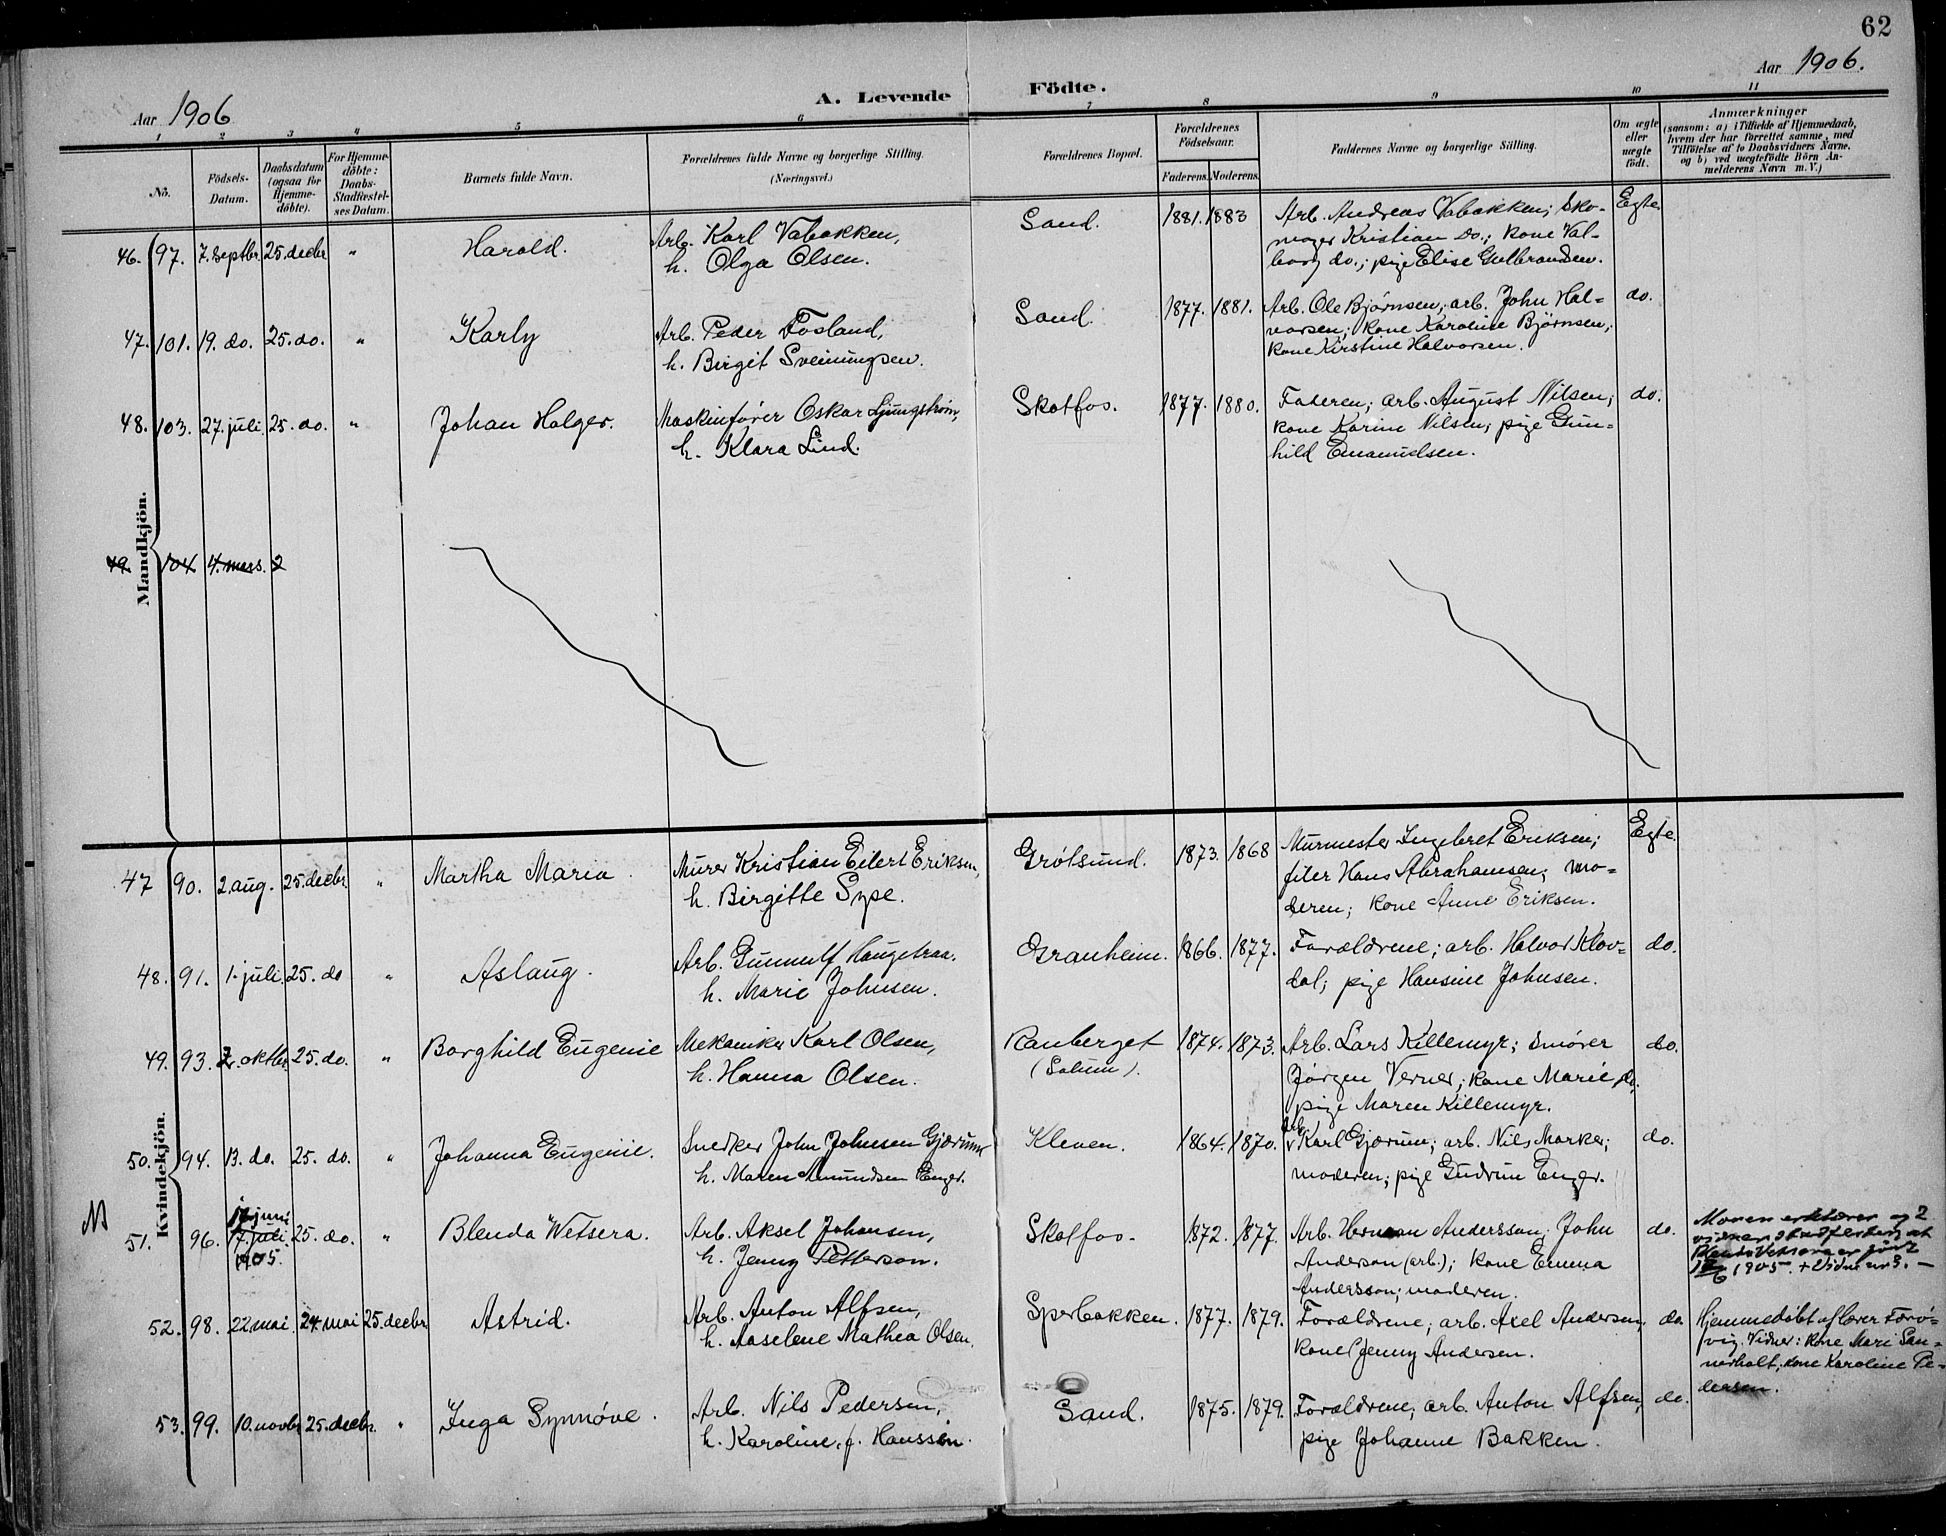 62
Aar 1906
A. Levende Födte.
Aar 1906.
1 2 3 4 5 6 7 8 9 10 11
No.
Födsels-
Datum.
Daabsdatum
(ogsaa for
Hjemme-
döbte).
For Hjemme-
döbte:
Daabs-
Stadfæstel-
ses Datum.
Barnets fulde Navn.
Forældrenes fulde Navne og borgerlige Stilling.
(Næringsvei.)
Forældrenes Bopæl.
Forældrenes
Födselsaar.
Faderens. Moderens.
Faddernes Navne og borgerlige Stilling.
Om ægte
eller
uægte
födt.
Anmærkninger
(saasom: a) i Tilfælde af Hjemmedaab,
hvem der har forrettet samme, med
Tilföielse af to Daabsvidners Navne,
og b) ved uægtefödte Börn An-
melderens Navn m. V.)
Mandkjön.
46. 97. 7. septbr. 25. decbr. " Harald.
Arb. Karl Vabakken,
h. Olga Olsen.
Sand. 1881. 1883
Arb. Andreas Vabakken; sko-
mager Kristian do.; kone Val-
borg do.; pige Elise Gulbrandsen.
Egte.
47. 101. 19. do. 25. do. " Karly
Arb. Peder Fosland,
h. Birgit Sveinungsen.
Sand. 1877. 1881.
Arb. Ole Bjørnsen; arb. John Hal-
vorsen; kone Karoline Bjørnsen;
kone Kirstine Halvorsen.
do.
48. 103. 27. juli. 25. do. " Johan Holger.
Maskinfører Oskar Ljungstrøm,
h. Klara Lind.
Skotfos. 1877. 1880.
Faderen; arb. August Nilsen;
kone Karine Nilsen; pige Gun-
hild Emanuelsen.
do.
49. 104 4. mars. 2
Kvindekjön.
47 90. 2. aug. 25. decbr. " Martha Maria.
Murer Kristian Eilert Eriksen,
h. Birgitte Sype.
Grøtsund. 1873. 1868
Murmester Ingebret Eriksen;
filer Hans Abrahamsen; mo-
deren; kone Anne Eriksen.
Egte.
48. 91. 1. juli. 25. do " Aslaug.
Arb. Gunnulf Haugetraa.
h. Marie Johnsen.
Granheim. 1866. 1877.
Forældrene; arb. Halvor Klov-
dal; pige Hansine Johnsen.
do.
49. 93. 2. oktbr. 25. do. " Borghild Eugenie
Mekaniker Karl Olsen,
h. Hanna Olsen.
Rauberget
(Solum).
1874. 1873.
Arb. Lars Killemyr; smører
Jørgen Verner; kone Marie do.
pige Maren Killemyr.
do.
50. 94. 13. do. 25. do. " Johanna Eugenie.
Snedker John Johnsen Gjærum
h. Maren Amundsen Enger.
Kleven. 1864. 1870.
Arb.
Karl Gjærum; arb. Nils Marker;
moderen; pige Gudrun Enger.
do.
51. 96. 17 juni 17. juli 1905. 25. do. " Blenda Wetsera.
Arb. Aksel Johansen,
h. Jenny Petterson.
Skotfos. 1872. 1877.
Arb. Herman Andersson; John
Anderson (arb.); kone Emma
Andersson; moderen.
do.
Moren erklærer og 2
Blenda Vetsera er født
17/6 1905.
52. 98. 22 mai. 24. mai 25. decbr. Astrid.
Arb. Anton Alfsen,
h. Aaselene Mathea Olsen.
Sperbakken. 1877. 1879.
Forældrene; arb. Axel Andersen;
kone Jenny Andersen.
do.
Hjemmedøbt af lærer Førø-
vig. Vidner: kone Mari San-
nerholt, kone Karoline Pe-
dersen.
53. 99. 10. novbr. 25. decbr. " Inga Synnøve.
Arb. Nils Pedersen,
h. Karoline, f. Hanssen.
Sand. 1875. 1879.
Forældrene; arb. Anton Alfsen;
pige Johanne Bakken.
do.